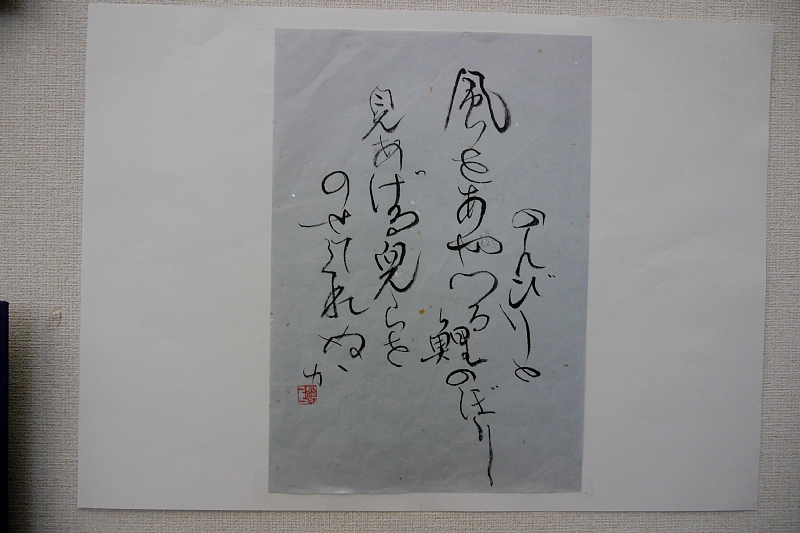 のんびりと
風をあやつる鯉のぼり
見あげる兒らを
のせてくれぬか